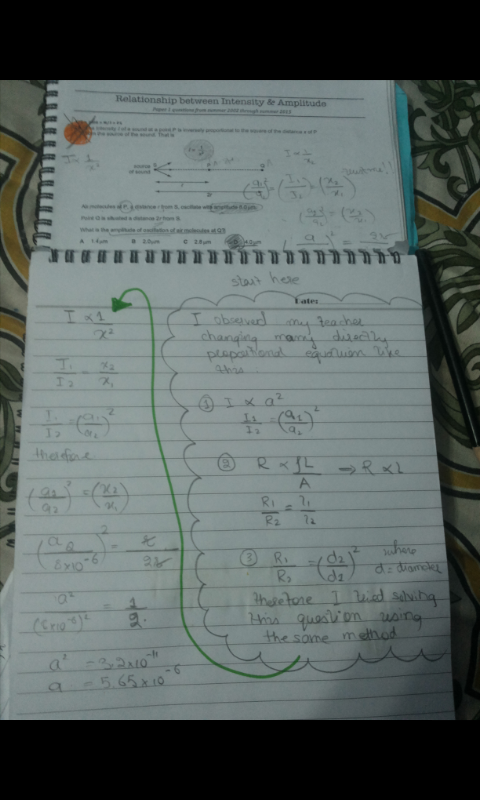 Relationship between Intensity & Amplitude
intensity I of a sound at a point P is inversely proportional to the square of the distance x of P
the source of the sound. That is
I ∝ 1/x²
source
of sound
r
P
I = 1/x²
(a₁/a₂)² = (I₁/I₂) = (x₂/x₁)
Air molecules at P, a distance r from S, oscillate with amplitude 8.0 µm.
Point Q is situated a distance 2r from S.
What is the amplitude of oscillation of air molecules at Q?
A 1.4µm B 2.0µm C 2.8µm 4.0µm
start here
Date:
I ∝ 1/x²
I₁/I₂ = x₂/x₁
I₁/I₂ = (a₁/a₂)²
therefore
(a₂/a₂)² = (x₂/x₁)
(a₂/8x10⁻⁶)² = r/2r
a²/(8x10⁻⁶)² = 1/2.
a² = 3.2x10⁻¹¹
a = 5.65x10⁻⁶
I observed my teacher
changing many directly
propotional equation like
this:
① I ∝ a²
I₁/I₂ = (a₁/a₂)²
② R ∝ ρL/A ⇒ R ∝ L
R₁/R₂ = l₁/l₂
③ R₁/R₂ = (d₂/d₁)² where
d = diameter
therefore I tried solving
this question using
the same method